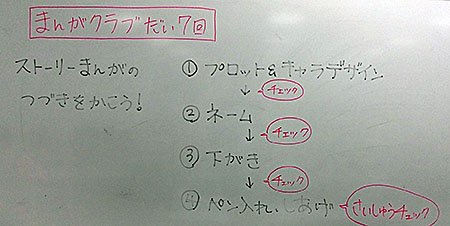 まんがクラブだい7回
ストーリーまんがの
つづきをかこう!
① プロット&キャラデザイン
↓ チェック
② ネーム
↓ チェック
③ 下がき
↓ チェック
④ ペン入れ、しあげ さいしゅうチェック